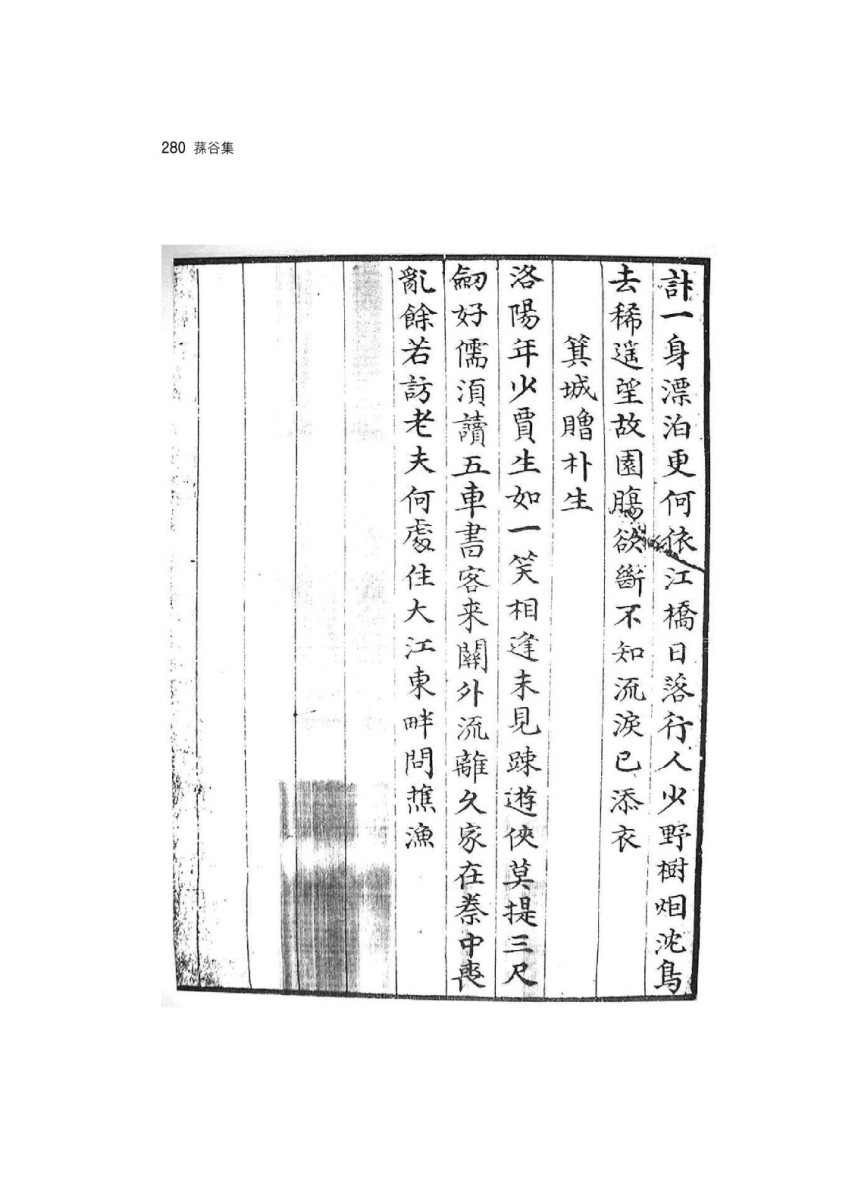 280 蓀谷集
計一身漂泊更何依江橋日落行人少野樹烟沈鳥
去稀遥望故園腸欲斷不知流淚已添衣
箕城贈朴生
洛陽年少賈生如一笑相逢未見踈遊俠莫提三尺
劒好儒湏讀五車書客来關外流離久家在秦中喪
亂餘若訪老夫何處住大江東畔問樵漁